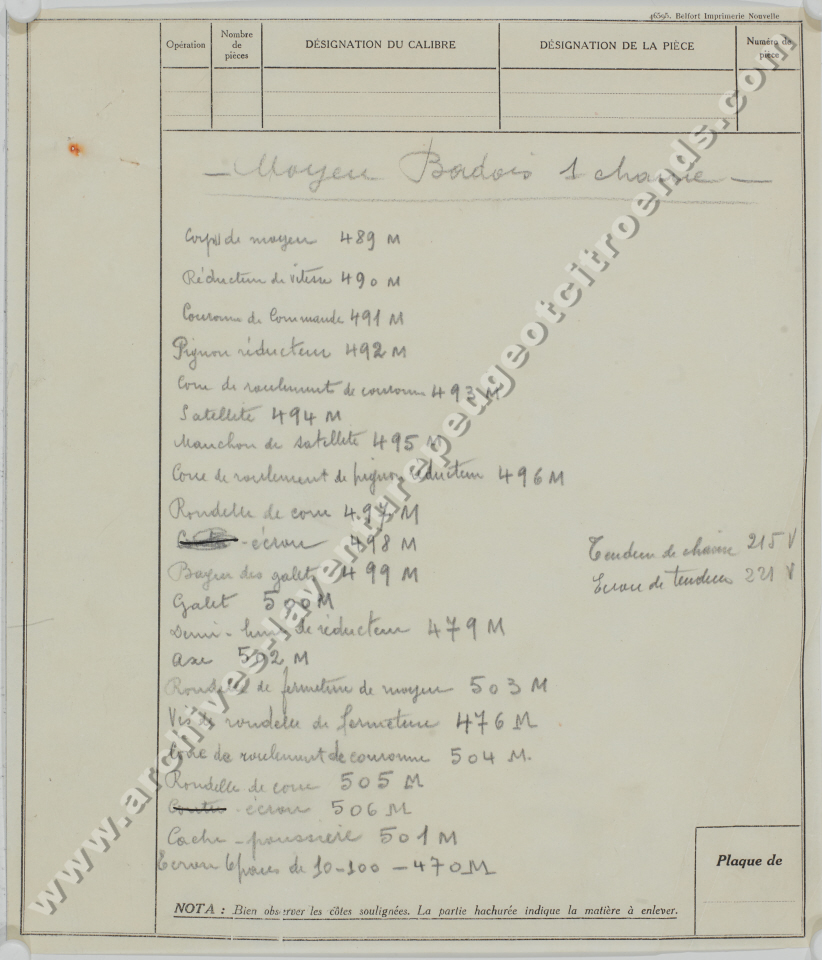 46595. Belfort Imprimerie Nouvelle
Opération
Nombre de pièces
DÉSIGNATION DU CALIBRE
DÉSIGNATION DE LA PIÈCE
Numéro de pièce
— Moyeu Badois 1 chaine —
Corps de moyeu 489 M
Réducteur de vitesse 490 M
Couronne de Commande 491 M
Pignon réducteur 492 M
Cone de roulement de couronne 493 M
Satellite 494 M
Manchon de satellite 495 M
Cone de roulement de pignon réducteur 496 M
Rondelle de cone 497 M
- écrou 498 M
Bague des galet 499 M
Galet 500 M
Demi-lune de réducteur 479 M
Axe 502 M
Rondelle de fermeture de moyeu 503 M
Vis de rondelle de fermeture 476 M
Cone de roulement de couronne 504 M.
Rondelle de cone 505 M
Contre - écrou 506 M
Cache - poussière 501 M
Ecrou 6 pans de 10-100 - 470 M
Tendeur de chaine 215 V
Ecrou de tendeur 221 V
Plaque de
NOTA : Bien observer les côtes soulignées. La partie hachurée indique la matière à enlever.
www.archives-laventurepeugeotcitroends.com